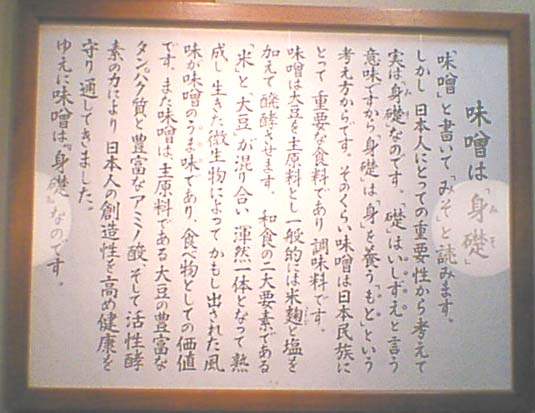 味噌は「身礎」
みそ
「味噌」と書いて「みそ」と読みます。
しかし日本人にとっての重要性から考えて
実は「身礎」なのです。「礎」はいしずえと言う
み そ
意味ですから「身礎」は「身」を養う“もと”という
考え方からです。そのくらい味噌は日本民族に
とって重要な食料であり調味料です。
味噌は大豆を主原料とし一般的には米麹と塩を
加えて醗酵させます。和食の二大要素である
「米」と「大豆」が混り合い渾然一体となって熟
成し生きた微生物によってかもし出された風
味が味噌のうま味であり、食べ物としての価値
です。また味噌は、主原料である大豆の豊富な
タンパク質と豊富なアミノ酸、そして活性酵
素の力により日本人の創造性を高め健康を
守り通してきました。
ゆえに味噌は『身礎』なのです。